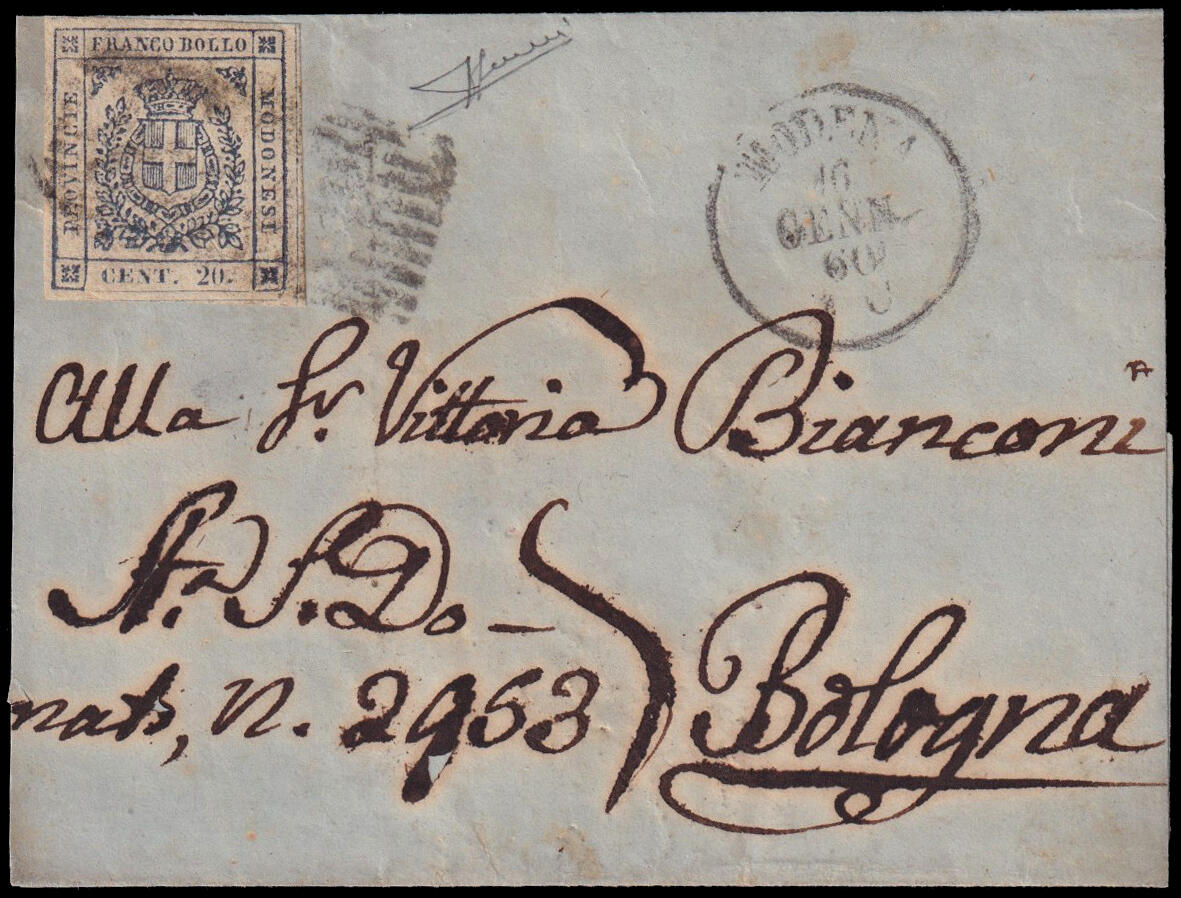 FRANCO BOLLO
PROVINCIE
MODONESI
CENT. 20.
MODENA
16
GENN
60
Alla Sr. Vittoria Bianconi
Sn. Do-
nato, n. 2953
Bologna